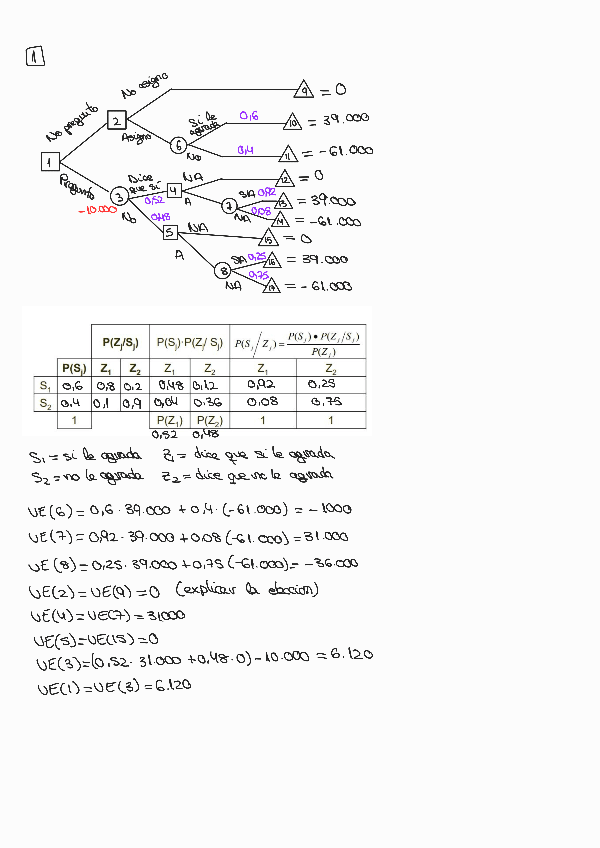 1
No asigno
9 = 0
No pregunto
2
Si le agrada
0,6
10 = 39.000
Asigno
6
No
0,4
11 = -61.000
1
Dice que si
NA
12 = 0
Pregunto
3
0,52
4
A
SA 0,92
13 = 39.000
-10.000
7
NA 0,08
14 = -61.000
No
0,48
5
NA
15 = 0
A
SA 0,25
16 = 39.000
8
0,75
NA
17 = -61.000
P(Zj/Sj) P(Sj)·P(Z/ Sj) P(Sj/Zj) = P(Sj) • P(Zj/Sj) / P(Zj)
P(Sj) Z1 Z2 Z1 Z2 Z1 Z2
S1 0,6 0,8 0,2 0,48 0,12 0,92 0,25
S2 0,4 0,1 0,9 0,04 0.36 0,08 0,75
1 P(Z1) P(Z2) 1 1
0,52 0,48
S1 = si le agrada Z1 = dice que si le agrada
S2 = no le agrada Z2 = dice que no le agrada
VE(6) = 0,6 · 39.000 + 0,4 · (-61.000) = -1000
VE(7) = 0,92 · 39.000 + 0,08 (-61.000) = 31.000
VE(8) = 0,25 · 39.000 + 0,75 (-61.000) = -36.000
VE(2) = VE(9) = 0 (explicar la eleccion)
VE(4) = VE(7) = 31000
VE(5) = VE(15) = 0
VE(3) = (0,52 · 31.000 + 0,48 · 0) - 10.000 = 6.120
VE(1) = VE(3) = 6.120